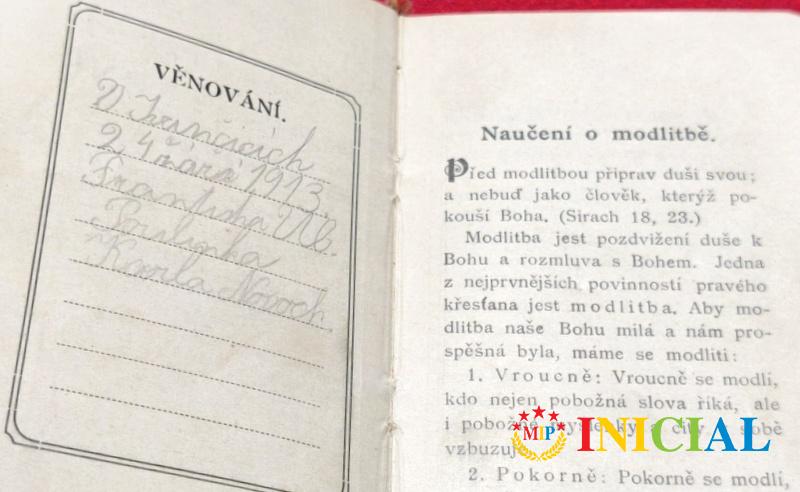 VĚNOVÁNÍ.
24 září 1913.
Naučení o modlitbě.
Před modlitbou připrav duši svou;
a nebuď jako člověk, kterýž po-
kouší Boha. (Sirach 18, 23.)
Modlitba jest pozdvižení duše k
Bohu a rozmluva s Bohem. Jedna
z nejprvnějších povinností pravého
křesťana jest modlitba. Aby mo-
dlitba naše Bohu milá a nám pro-
spěšná byla, máme se modliti:
1. Vroucně: Vroucně se modlí,
kdo nejen pobožná slova říká, ale
i pobožné myšlenky a city v sobě
vzbuzuje
2. Pokorně: Pokorně se modlí,
MIP INICIAL